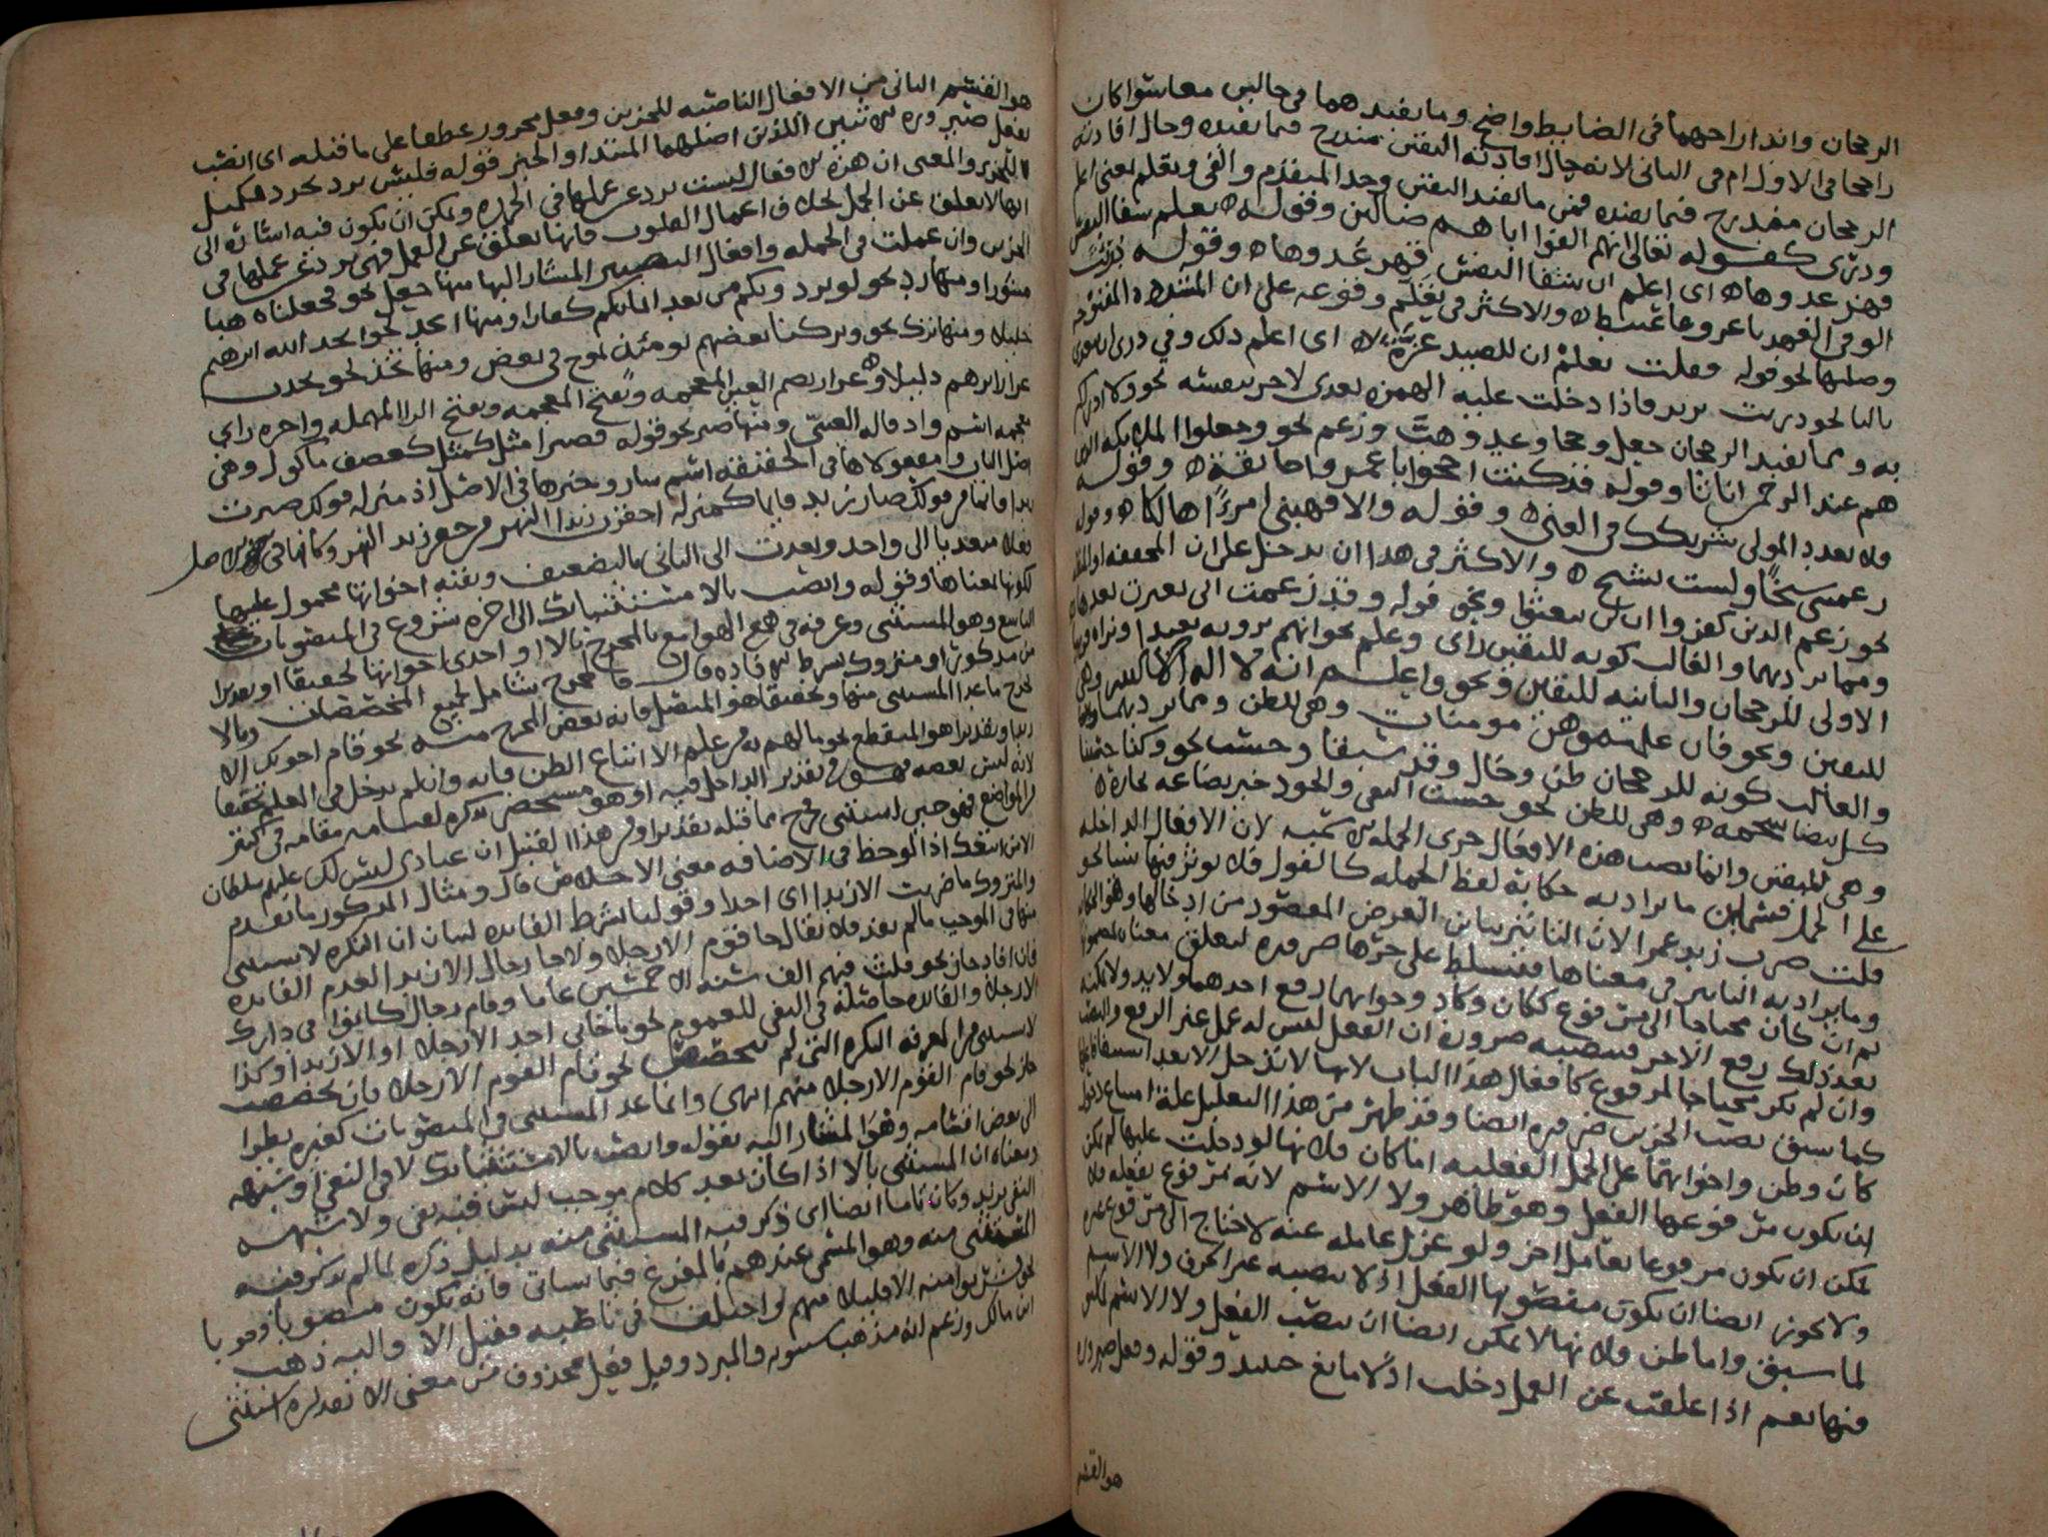 الرجحان واندار احهما في الضابط واضح وما يفيدهما في حالين معا سوا كان
راجحا في الاول ام في الثاني لانه حال افادته اليقين مندرج فيما يفيده وحال افادته
الرجحان مندرج فيما يفيده فمن ما يفيد اليقين وجد المتقدم والفى وتعلم بمعنى اعلم
ودرى كقوله تعالى انهم الفوا اباهم ضالين وقوله تعلم شفا النفس
قهر عدوها اى اعلم ان شفا النفس قهر عدوها وقوله دريت
الوفى العهد يا عرو فاغتبط والاكثر فى تعلم وقوعه على ان المشدده المفتوحه
وصلتها نحو قوله فقلت تعلم ان للصيد غرة اى اعلم ذلك وفي درى ان يتعدى
بالبا نحو دريت بزيد فاذا دخلت عليه الهمزه تعدى لاخر بنفسه نحو ولا ادراكم
به ومما يفيد الرجحان جعل وحجا وعد وهب وزعم نحو وجعلوا الملايكه الذين
هم عند الرحمن اناثا وقوله قد كنت احجوا ابا عمرو اخا ثقة وقوله
فلا تعدد المولى شريكك في الغنى وقوله والا فهبني امرءا هالكا وقوله
زعمتني شيخا ولست بشيخ والاكثر في هذا ان يدخل على ان المخففه او المثقله
نحو زعم الذين كفروا ان لن يبعثوا ونحو قوله وقد زعمت انى تغيرت بعدها
ومما يرد بهما والغالب كونه لليقين راى وعلم نحو انهم يرونه بعيدا ونراه قريبا
الاولى للرجحان والثانيه لليقين ونحو واعلم انه لا اله الا الله وهى
لليقين ونحو فان علمتموهن مومنات وهى للظن ومما يرد بهما
والغالب كونه للرجحان ظن وخال وقد سبقا وحسب نحو وكنا حسبنا
كل بيضا شحمه وهى للظن نحو حسبت التقى والجود خير بضاعه تجارة
وهى لليقين وانما نصب هذه الافعال جزى الجمله الاسميه لان الافعال الداخله
على الجمل قسمان ما يراد به حكاية لفظ الجمله كالقول فلا يوثر فيها شيا نحو
قلت ضرب زيد عمرا لان التاثير يباين الغرض المقصود من ادخالها وهو الحكايه
وما يراد به التاثير في معناها فيتسلط على جزها ضروره لتعلق معناه بمضمونها
ثم ان كان محتاجا الى مرفوع ككان وكاد واخواتهما رفع احدهما ولا بد ولا يمكنه
بعد ذلك رفع الاخر فينصبه ضرورة ان الفعل ليس له عمل غير الرفع والنصب
وان لم يكن محتاجا لمرفوع كافعال هذا الباب لانها لا تدخل الا بعد استيفا فاعلها
كما سبق نصب الجزين ضروره ايضا وقد ظهر من هذا التعليل علة امتناع دخول
كان وظن واخواتهما على الجمل الفعليه اما كان فلانها لو دخلت عليها لم يكن
ان يكون مرفوعها الفعل وهو ظاهر ولا الاسم لانه مرفوع بفعله فلا
يمكن ان يكون مرفوعا بعامل اخر ولو عزل عامله عنه لاحتاج الى مرفوع غيره
ولا يجوز ايضا ان يكون منصوبها الفعل اذ لا ينصبه غير الحرف ولا الاسم
لما سبق واما ظن فلانها لا يمكن ايضا ان ينصب الفعل ولا الاسم لكن
منها نعم اذا علقت عن العمل دخلت اذ لا مانع حينيد وقوله وفعل صيروره
هو القسم
هو القسم الثانى من الافعال الناصبه للجزين وفعل مجرور عطفا على ما قبله اى انصب
بفعل صيروره الاثنين اللذين اصلهما المبتدا والخبر فقوله فليس برد تجرد تكميل
للتحرير والمعنى ان هذه الافعال ليست برد عن عملها في الجمله ويمكن ان يكون فيه اشارة الى
انها لا تعلق عن الجمل بخلاف اعمال القلوب فانها تعلق عن العمل فهى برد عن عملها في
الجزين وان عملت في الجمله وافعال التصيير المشار اليها منها جعل نحو فجعلناه هبا
منثورا ومنها رد نحو لو يردونكم من بعد ايمانكم كفارا ومنها اتخذ نحو اتخذ الله ابرهيم
خليلا ومنها ترك نحو وتركنا بعضهم يومئذ يموج في بعض ومنها تخذ نحو تخذت
غراز اثرهم دليلا وغراز بضم الغين المعجمه وبفتح المعجمه وبفتح الرا المهمله واخره زاى
معجمه اسم واد قاله العينى ومنها صير نحو قوله فصيرا مثل كعصف ماكول وهى
اصل الباب ومفعولاها في الحقيقه اسم صار وخبرها في الاصل اذ منزله قولك صيرت
زيدا قائما من قولك صار زيد قايما كمنزله احفرت زيدا النهر من حفر زيد النهر وكانها في الاصل
فعلا متعديا الى واحد وتعدت الى الثاني بالتضعيف وبقيه اخواتها محمول عليها
لكونها بمعناها وقوله وانصب بالا مستثنياتك الى اخره شروع في المنصوبات
التاسع وهو المستثنى وعرفه في همع الهوامع بالمخرج بالا او احدى اخواتها تحقيقا او تقديرا
من مذكور او متروك بشرط الافاده قال فالمخرج شامل لجميع المخصصات وبالا
يخرج ما عدا المستثنى منها وتحقيقا هو المتصل فانه بعض المخرج منه نحو قام اخوتك الا
زيدا وتقديرا هو المنقطع نحو ما لهم به من علم الا اتباع الظن فانه وان لم يدخل في العلم تحقيقا
لانه ليس بعضه فهو في تقدير الداخل فيه اذ هو مستحضر بذكره لقيامه مقامه في كثير
من المواضع فهو حين استثنى خرج مما قبله تقديرا ومن هذا القبيل ان عبادى ليس لك عليهم سلطان
الا من اتبعك اذا لوحظ في الاضافه معنى الاخلاص قال ومثال المذكور ما تقدم
والمتروك ما ضربت الا زيدا اى احدا وقولنا بشرط الفايده لبيان ان النكره لا يستثنى
منها في الموجب ما لم يفد فلا يقال جا قوم الا رجلا ولا جا رجال الا زيدا لعدم الفايده
فان افاد جاز نحو فلبث فيهم الف سنه الا خمسين عاما وقام رجال كانوا في دارك
الا رجلا والفايده حاصله في النفى للعموم نحو ما جانى احد الا رجلا او الا زيدا وكذا
لا يستثنى من المعرفه النكره التى لم تخصص نحو قام القوم الا رجلا فان تخصصت
جاز نحو قام القوم الا رجلا منهم انتهى وانما عد المستثنى في المنصوبات كغيره نظرا
الى بعض اقسامه وهو المشار اليه بقوله وانصب بالا مستثنياتك لا في النفي او شبهه
ومعناه ان المستثنى بالا اذا كان بعد كلام موجب ليس فيه نفى ولا شبهه
النفى يريد وكان تاما ايضا اى ذكر فيه المستثنى منه بدليل ذكره لما لم يذكر فيه
المستثنى منه وهو المسمى عندهم بالمفرغ فيما سياتى فانه يكون منصوبا وجوبا
نحو فشربوا منه الا قليلا منهم واختلف في ناصبه فقيل الا واليه ذهب
ابن مالك وزعم انه مذهب سيبويه والمبرد وقيل فعل محذوف من معنى الا تقديره استثنى